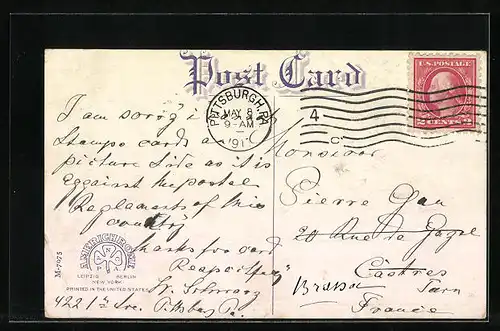 Post Card
PITTSBURGH, PA.
MAY 8
9-AM
191
4
C
U.S. POSTAGE
2 CENTS 2
I am sorry i
Stampe cards on
picture side as it is
eggainst the postal
Reglaments of this
country
thanks for card
Respectfully
Schwarz
4221 Ave. Pittsburg Pa.
Monsieur
Pierre
20 Rue de
Castres
Tarn
France
M-7075
AMERICHROME
LEIPZIG BERLIN
NEW YORK
PRINTED IN THE UNITED STATES